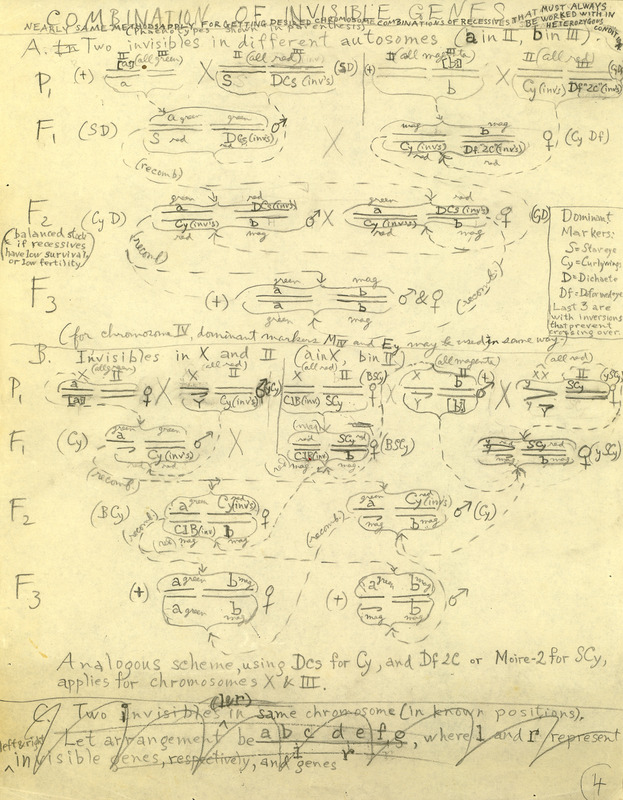 COMBINATION OF INVISIBLE GENES
NEARLY SAME METHODS APPLY FOR GETTING DESIRED CHROMOSOME COMBINATIONS OF RECESSIVES THAT MUST ALWAYS BE WORKED WITH IN HETEROZYGOUS CONDITION
(phaeno types shown in parenthesis)
A. Two invisibles in different autosomes (a in II, b in III).
II (all green) II (all red) III II (all magenta) II (all red) III
P1 (+) [a] a X S DCS (inv's) (SD) (+) [b] b X Cy (inv's) Df 2C (inv's)
F1 (SD) a green green S red DCS (inv's) red ♂ X mag b mag Cy (inv's) red Df 2C (inv's) red ♀ (Cy Df)
(recomb)
F2 (Cy D) green a red DCS (inv's) Cy (inv's) red b mag ♂ X green a red DCS (inv's) Cy (inv's) red b mag ♀
(balanced stock if recessives have low survival or low fertility)
(recomb)
(recomb)
Dominant
Markers:
S=Star eye
Cy=Curly wings
D=Dichaete
Df=Deformed eye
Last 3 are
with inversions
that prevent
crossing over.
F3 (+) green a mag b a green b mag ♂ & ♀
(for chromosome IV, dominant markers MIV and Ey may be used in same way.)
B. Invisibles in X and II (a in X, b in II).
X (all green) II X (all red) II X II (all magenta) X II (all red) XX II
P1 a [a] ♀ X Y Cy (inv's) ♂ (Cy) ClB (inv) SCy ♀ (BSCy) X Y b [b] ♂ (+) X y y Y SCy (ySCy)
F1 (Cy) a green green Cy (inv's) red ♂ X (mag) red SCy red ClB (inv) b mag ♀ (BSCy) SCy red b mag ♀ (ySCy)
(recomb)
F2 (BCy) a green Cy red (inv's) ClB (inv) b mag ♀ a green Cy red (inv's) mag b mag ♂ (Cy)
(recomb) (recomb)
F3 (+) a green b mag a green b mag ♀ (+) a green b mag mag b mag ♂
Analogous scheme, using Dcs for Cy, and Df 2C or Moire-2 for SCy,
applies for chromosomes X & III.
C. Two invisibles (l&r) in same chromosome (in known positions).
Let arrangement be a b c d e f g, where l and r represent
left & right
invisible genes, respectively, and genes
4